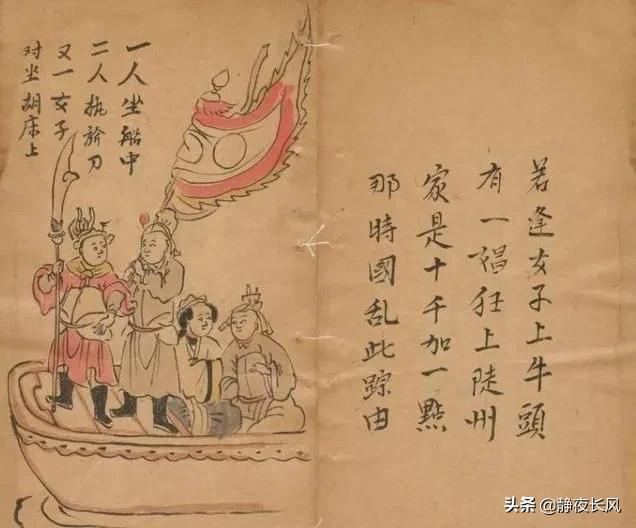 若逢女子上牛頭
有一猖狂上陡州
家是十千加一點
那時國乱此踪由
一人坐船中
二人执於刀
又一女子
对坐胡床上
头条 @静夜长风